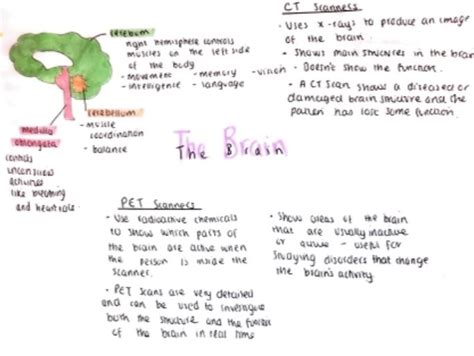 cerebrum
right hemisphere controls
muscles on the left side
of the body
- movement - memory - vision
- intelligence - language
cerebellum
- muscle
coordination
- balance
medulla
oblongata
controls
unconscious
activities
like breathing
and heart rate.
The Brain
The Brain
CT Scanners
- Uses x-rays to produce an image
of the brain.
- Shows main structures in the brain
- Doesn't show the function.
- A CT scan shows a diseased or
damaged brain structure and the
patient has lose some function.
PET Scanners
- Use radioactive chemicals
to show which parts of
the brain are active when
the person is inside the
scanner.
- PET scans are very detailed
and can be used to investigate
both the structure and the function
of the brain in real time
- Show areas of the brain
that are usually inactive
or active - useful for
studying disorders that change
the brain's activity.